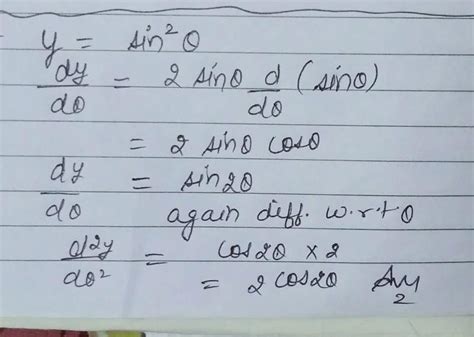 y = sin²θ
dy/dθ = 2 sinθ d/dθ (sinθ)
= 2 sinθ cosθ
dy/dθ = sin2θ
again diff. w.r.t θ
d²y/dθ² = cos2θ × 2
= 2 cos2θ